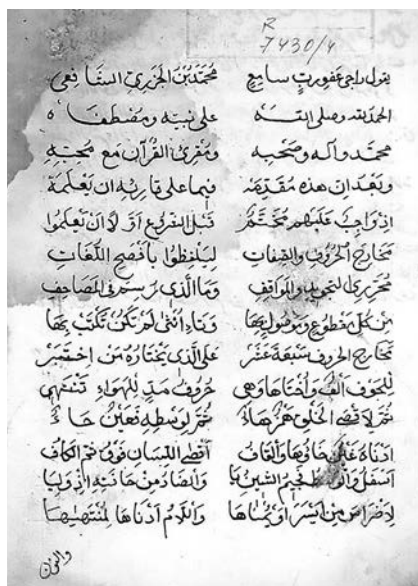 R
7430/4
يقول راجي عفو رب سامع محمد بن الجزري الشافعي
الحمد لله وصلى الله على نبيه ومصطفاه
محمد وآله وصحبه ومقرئ القرآن مع محبه
وبعد ان هذه مقدمه فيما على قاريه ان يعلمه
اذ واجب عليهم محتم قبل الشروع أولا ان يعلموا
مخارج الحروف والصفات ليلفظوا بأفصح اللغات
محرري التجويد والمواقف وما الذي رسم في المصاحف
من كل مقطوع وموصول بها وتاء أنثى لم تكن تكتب بها
مخارج الحروف سبعة عشر على الذي يختاره من اختبر
للجوف الف وأختاها وهي حروف مد للهواء تنتهي
ثم لاقصى الحلق همز هاء ثم لوسطه فعين حاء
ادناه غين خاؤها والقاف أقصى اللسان فوق ثم الكاف
اسفل والوسط فجيم الشين يا والضاد من حافته إذ وليا
لاضراس من ايسر او يمناها واللام أدناها لمنتهاها
والنون